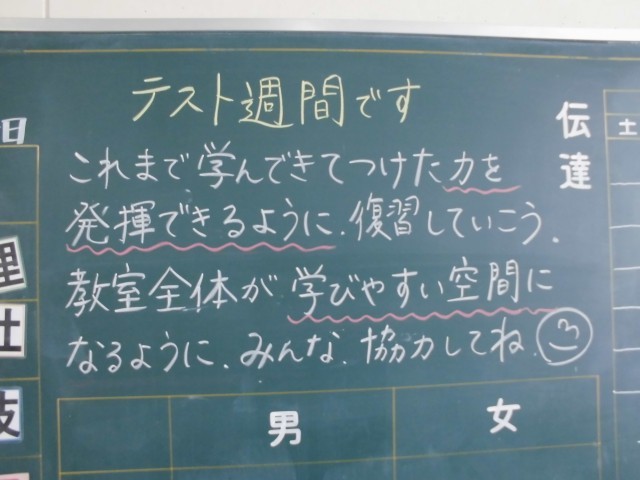 テスト週間です
これまで学んできてつけた力を
発揮できるように、復習していこう。
教室全体が学びやすい空間に
なるように、みんな、協力してね。
伝達
日
土
理
社
技
男
女